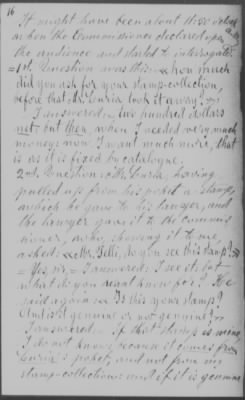 16
It might have been about three o'clock
when the Commissioner declared open
the audience and started to interrogate.
=1st. Question was this: "how much
did you ask for your stamp-collection,
before that Mr. Curia took it away?"
I answered: "five hundred dollars
not, but then when I needed very much
money; now I want much more, that
is as it is fixed by catalogue.
2nd. Question: Mr. Curia, having
pulled up from his poket a stamp,
which he gave to his lawyer, and
the lawyer gave it to the commis
sioner, who, showing it to me,
asked: "Mr. Felli, do you see this stamp?"
= Yes, sir, = I answered: I see it; but
what do you want know for? He
said again: "Is this your stamp?
And is it genuine or not genuine?"
I answered: = if this stamp is mine
I do not know, because it comes from
Curia's poket, and not from my
stamp-collection: and if it is genuine